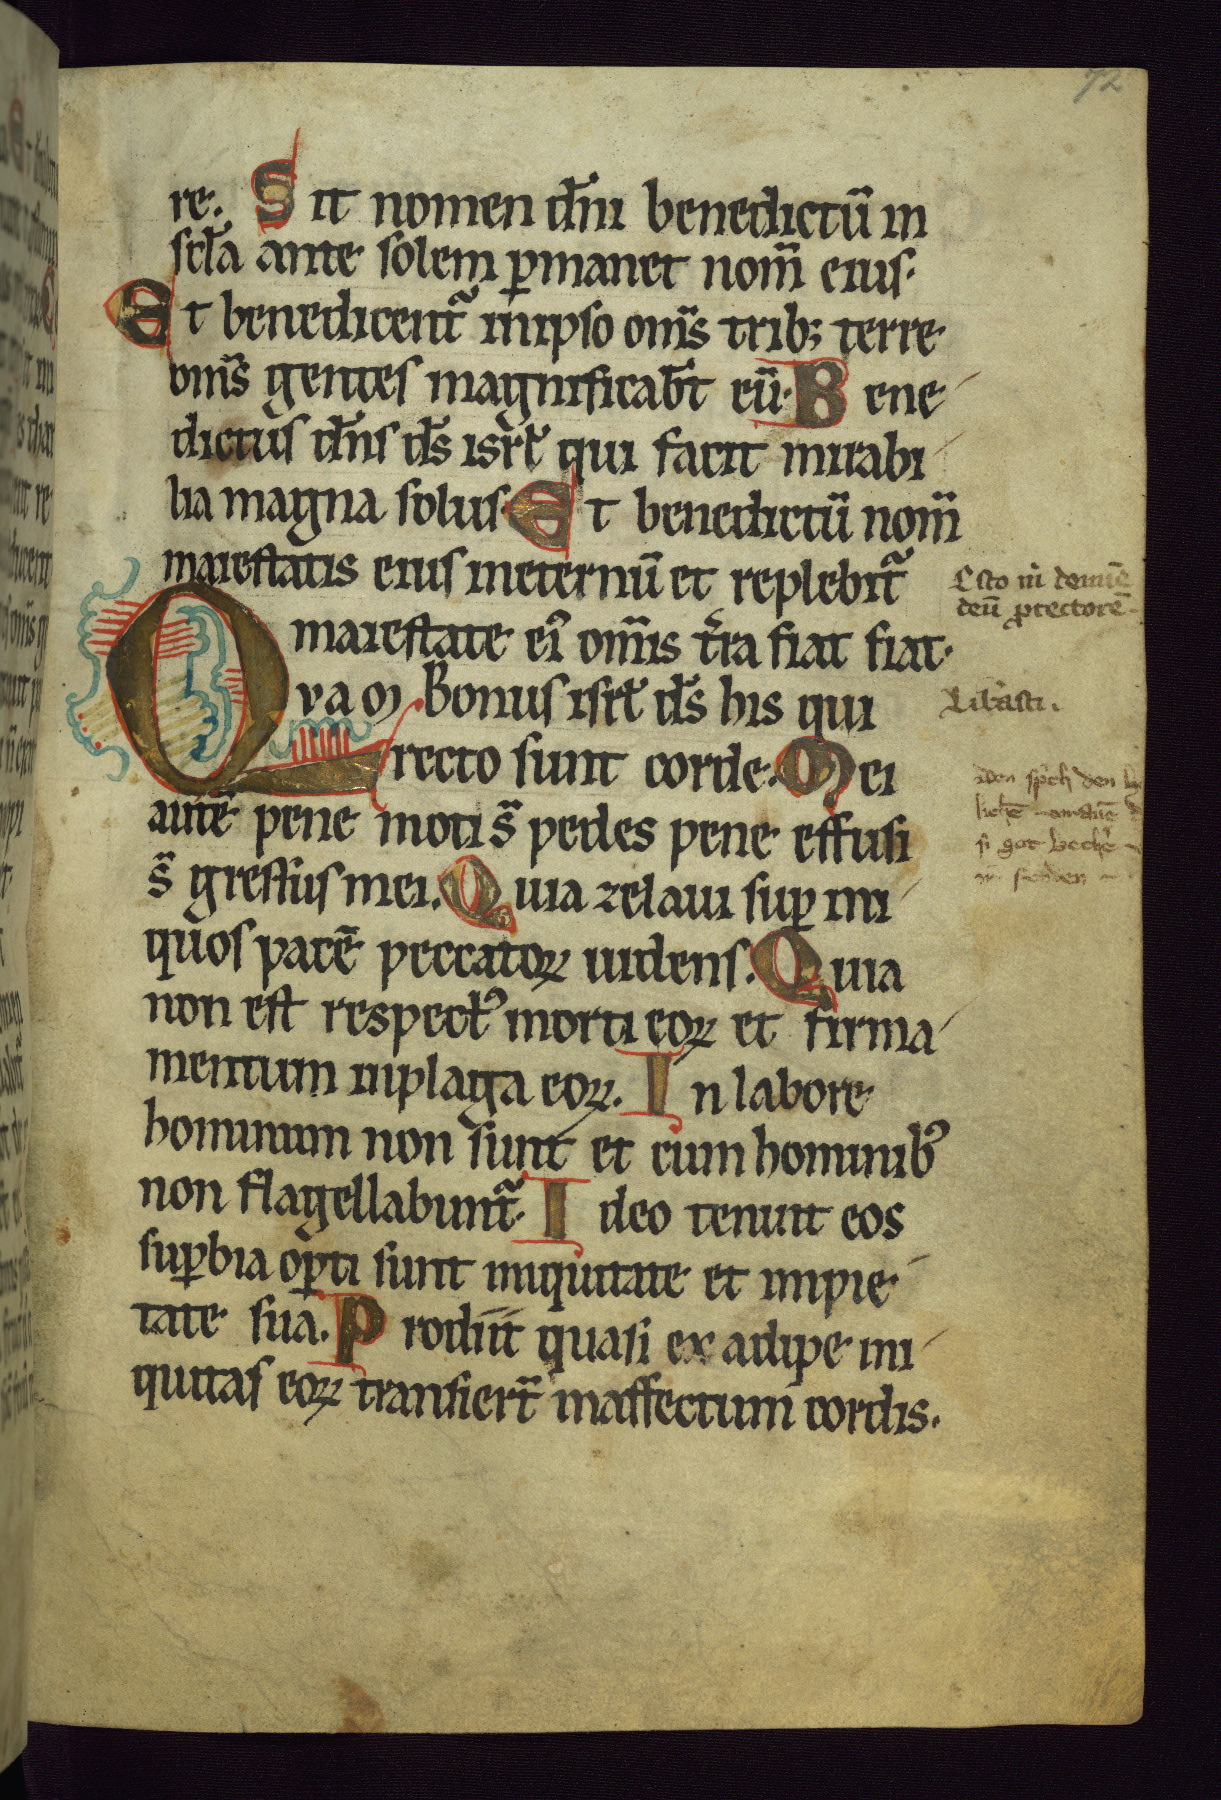 72
re. Sit nomen dn̄i benedictū in
scl̄a ante solem ꝑmanet nom̄ eius.
Et benedicent᷑ inipso om̄s trib; terre
om̄s gentes magnificab̄t eū. Bene
dictus dn̄s ds̄ isrl̄ qui facit mirabi
lia magna solus. Et benedictū nom̄
maiestatis eius ineternū et replebit᷑
maiestate ei᷒ om̄is t̄ra fiat fiat.
Qvam Bonus isrl̄ ds̄ his qui
recto sunt corde. Mei
autē pene moti s̄ pedes pene effusi
s̄ gressus mei. Quia zelaui suꝑ ini
quos pacē peccatoꝝ uidens. Quia
non est respect᷒ morti eoꝝ et firma
mentum inplaga eoꝝ. In labore
hominum non sunt et cum hominib᷒
non flagellabunt᷑. Ideo tenuit eos
suꝑbia oꝑti sunt iniquitate et impie
tate sua. Prodiit quasi ex adipe ini
quitas eoꝝ transiert̄ inaffectum cordis.
Esto m̄ domīe
deū ꝓtectorē
Lib̄asti.
den
den
si got